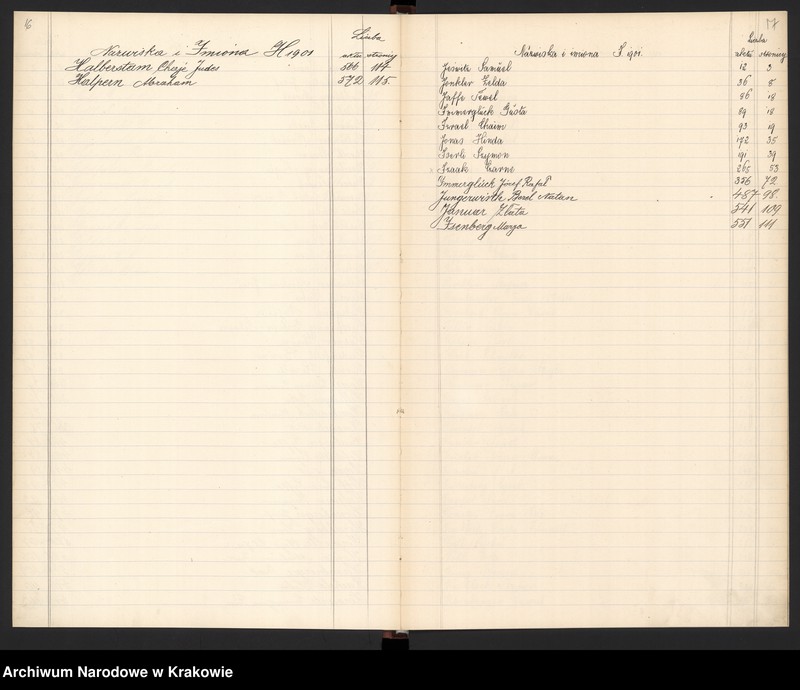 16
Liczba
Nazwiska i Imiona H 1901
aktu stronicy
Halberstam Chaje Judes 566 114
Halpern Abraham 572 115.
17
Liczba
Nazwiska i imiona I 1901.
aktu stronicy
Samuel 12 3
Jenkler Zelda 36 8
Jaffe 86 18
Immerglück Gusta 89 18
Israel Chaim 93 19
Jonas Hinda 172 35
Iserle Szymon 191 39
Izaak 265 53
Immerglück Józef Rafał 356 72
Jungerwirth Berel Natan 487 98.
Januar Złata 541 109
Isenberg Marya 551 111
Archiwum Narodowe w Krakowie